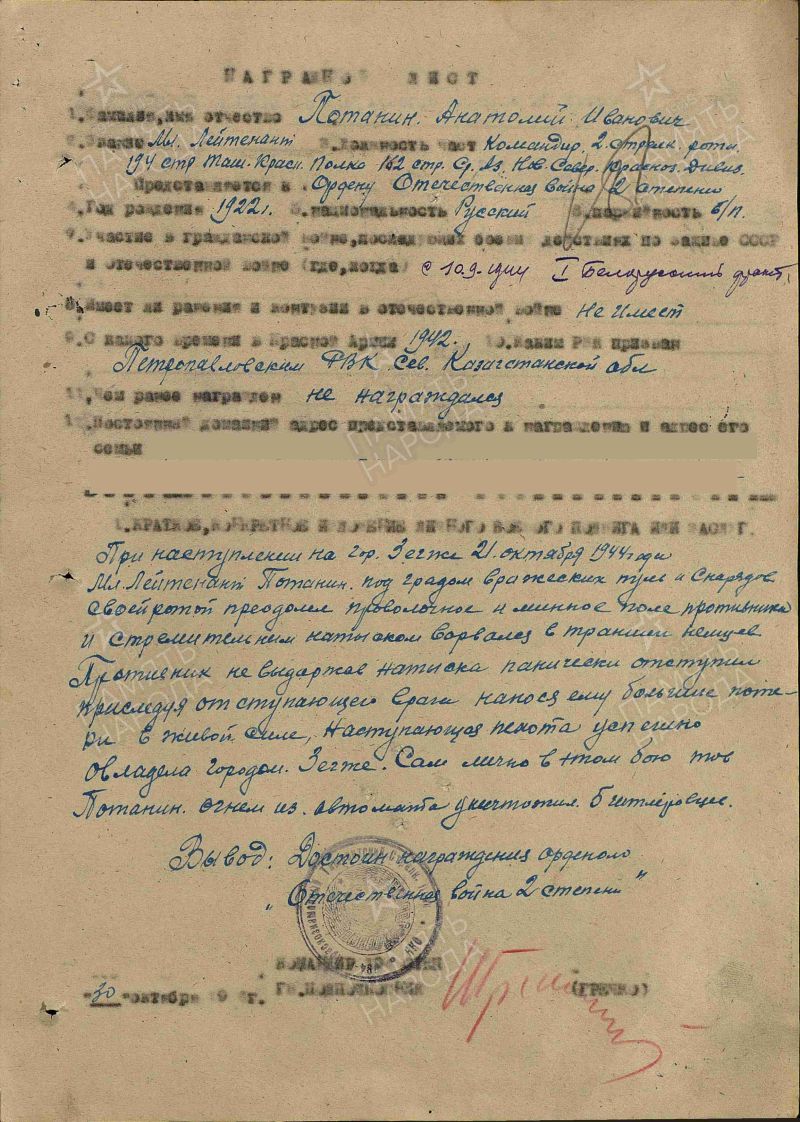 НАГРАДНОЙ ЛИСТ
1. Фамилия, имя отчество Потанин. Анатолий Иванович
2. Звание Мл. Лейтенант 3. Должность част Командир. 2. стрелк. роты.
194 стр Таш. Красн. Полка 162 стр. Ср. Аз. Нов. Север. Краснозн. Дивиз.
Представляется к Ордену Отечественная война 2 степени
4. Год рождения 1922 г. 5. национальность Русский 6. партийность б/п.
7. Участие в гражданской войне, последующих боевых действиях по защите СССР
и отечественной войне (где, когда) с 10.9-1944 I Белорусский фронт.
8. Имеет ли ранения и контузии в отечественной войне Не имеет
9. С какого времени в Красной Армии 1942. 10. Каким РВК призван
Петропавловским РВК Сев. Казагстанской обл
11. Чем ранее награжден не награждался
12. Постоянный домашний адрес представляемого к награждению и адрес его
семьи
1. КРАТКОЕ, КОНКРЕТНОЕ ИЗЛОЖЕНИЕ ЛИЧНОГО БОЕВОГО ПОДВИГА ИЛИ ЗАСЛУГ.
При наступлении на гор. Зегже 21. октября 1944 года
Мл. Лейтенант Потанин. под градом вражеских пуль и снарядов
своей ротой преодолел проволочное и минное поле противника
и стремительным натыском ворвался в траншеи немцев
Противник не выдержав натиска панически отступил
приследуя отступающего врага нанося ему большие поте-
ри в живой силе, Наступающая пехота успешно
овладела городом. Зегже. Сам лично в этом бою тов
Потанин. огнем из автомата уничтожил. 6 гитлеровцев.
Вывод: Достоин награждения орденом
"Отечественная война 2 степени"
КОМАНДИР ПОЛКА
ГВ. ПОДПОЛКОВНИК (ГРЕЧКО)
"30" октября 1944 г.
ПАМЯТЬ НАРОДА